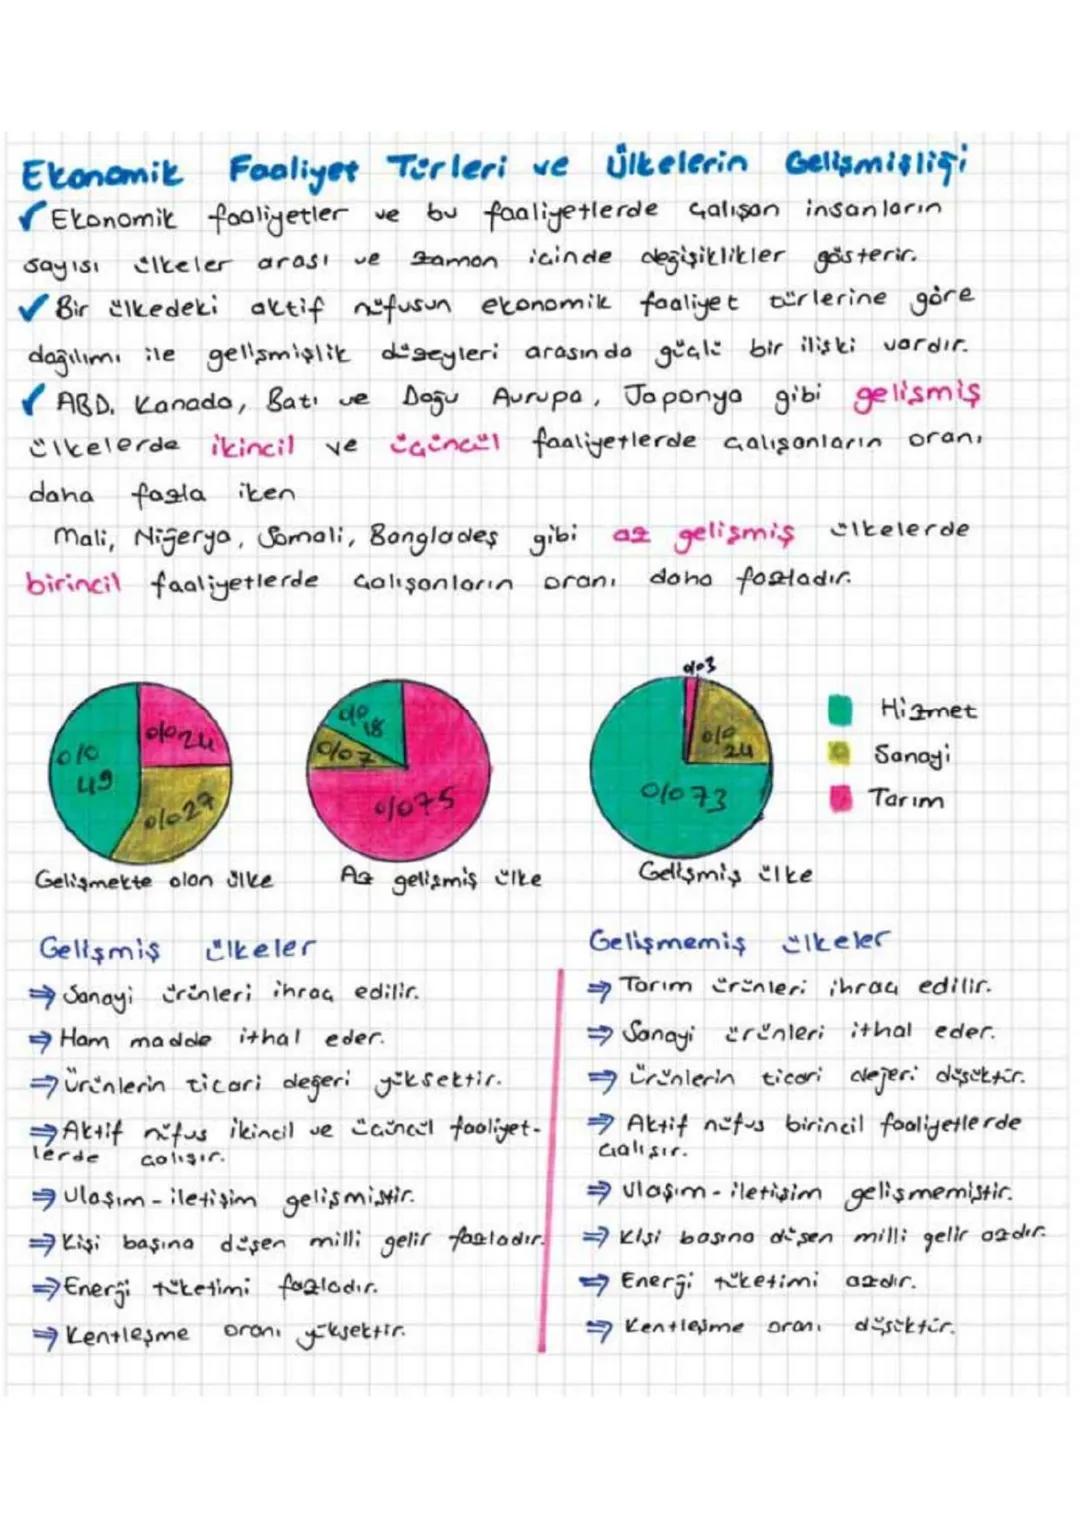 Ekonomik Faaliyet Türleri ve Ülkelerin Gelişmişliği
✓ Ekonomik faaliyetler ve bu faaliyetlerde çalışan insanların
sayısı ülkeler arası ve zaman içinde değişiklikler gösterir.
✓ Bir ülkedeki aktif nüfusun ekonomik faaliyet türlerine göre
dağılımı ile gelişmişlik düzeyleri arasında güçlü bir ilişki vardır.
✓ ABD, Kanada, Batı ve Doğu Avrupa, Japonya gibi gelişmiş
ülkelerde ikincil ve üçüncül faaliyetlerde çalışanların oranı
daha fazla iken
Mali, Nijerya, Somali, Bangladeş gibi az gelişmiş ülkelerde
birincil faaliyetlerde çalışanların oranı daha fazladır.
%49 %24 %27
%18 %7 %75
%3 %24 %73
Hizmet
Sanayi
Tarım
Gelişmekte olan ülke
Az gelişmiş ülke
Gelişmiş ülke
Gelişmiş ülkeler
⇒ Sanayi ürünleri ihraç edilir.
⇒ Ham madde ithal eder.
⇒ Ürünlerin ticari değeri yüksektir.
⇒ Aktif nüfus ikincil ve üçüncül faaliyet-
lerde çalışır.
⇒ Ulaşım - iletişim gelişmiştir.
⇒ Kişi başına düşen milli gelir fazladır.
⇒ Enerji tüketimi fazladır.
⇒ Kentleşme oranı yüksektir.
Gelişmemiş ülkeler
⇒ Tarım ürünleri ihraç edilir.
⇒ Sanayi ürünleri ithal eder.
⇒ Ürünlerin ticari değeri düşüktür.
⇒ Aktif nüfus birincil faaliyetlerde
çalışır.
⇒ Ulaşım - iletişim gelişmemiştir.
⇒ Kişi başına düşen milli gelir azdır.
⇒ Enerji tüketimi azdır.
⇒ Kentleşme oranı düşüktür.